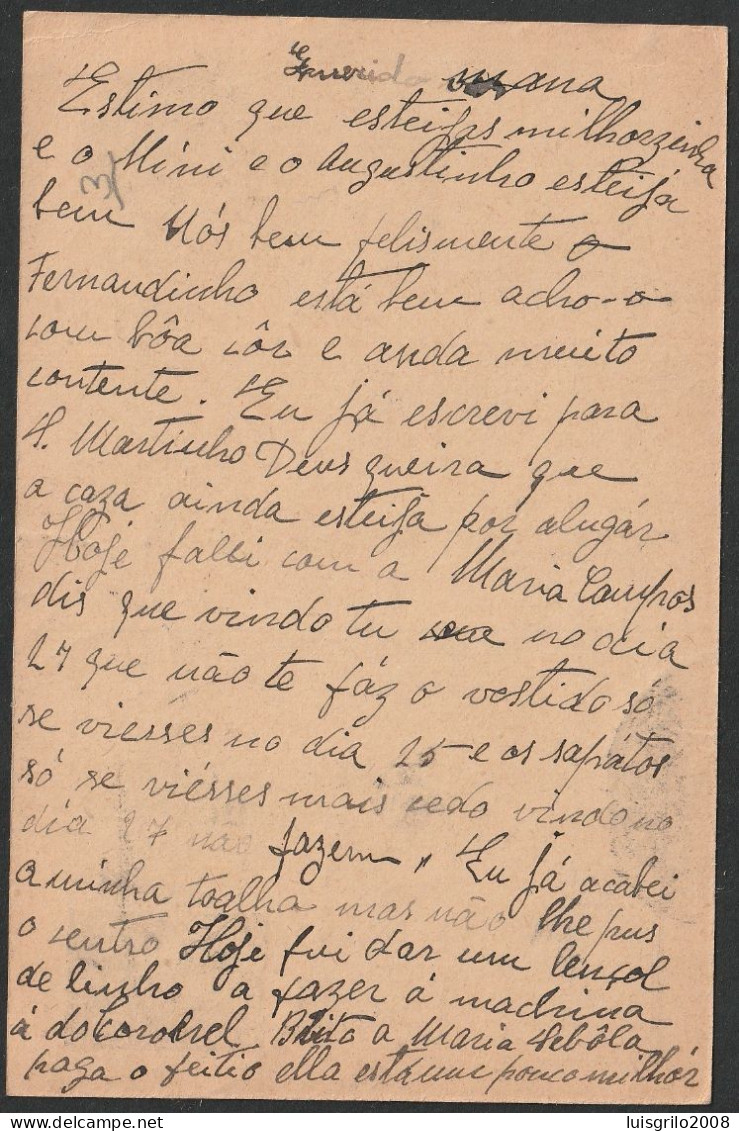 Querida mana
Estimo que esteijas milhorzinha
e o Mini e o Augustinho esteija
3
bem Nós bem felismente o
Fernandinho está bem acho-o
com bôa côr e anda muito
contente. Eu já escrevi para
S. Martinho Deus queira que
a caza ainda esteija por alugár
Hoje fallei com a Maria Campos
dis que vindo tu no dia
27 que não te fáz o vestido só
se viésses no dia 25 e os sapátos
só se viésses mais cedo vindo no
dia 27 não fazem, Eu já acabei
a minha toalha mas não lhe pus
o sentro Hoje fui dar um lençol
de linho a fazer á machina
á do Coronel Brito a Maria Sebôla
paga o feitio ella está um pouco milhór
luisgrilo2008